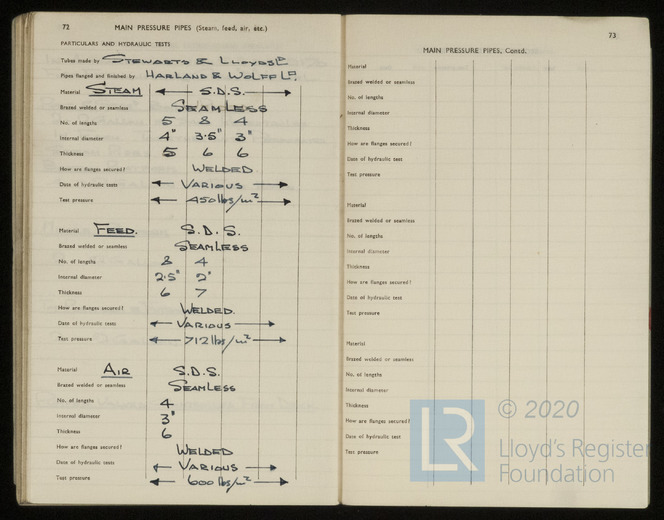 72 MAIN PRESSURE PIPES (Steam, feed, air, etc.)
PARTICULARS AND HYDRAULIC TESTS
Tubes made by STEWARTS & LLOYDS LD
Pipes flanged and finished by HARLAND & WOLFF LD.
Material STEAM S.D.S.
Brazed welded or seamless SEAMLESS
No. of lengths 5 8 4
Internal diameter 4" 3.5" 3"
Thickness 5 6 6
How are flanges secured? WELDED
Date of hydraulic tests VARIOUS
Test pressure 450 lbs/in2
Material FEED. S.D.S.
Brazed welded or seamless SEAMLESS
No. of lengths 8 4
Internal diameter 2.5" 2"
Thickness 6 7
How are flanges secured? WELDED.
Date of hydraulic tests VARIOUS
Test pressure 712 lbs/in2
Material AIR S.D.S.
Brazed welded or seamless SEAMLESS
No. of lengths 4
Internal diameter 3"
Thickness 6
How are flanges secured? WELDED
Date of hydraulic tests VARIOUS
Test pressure 600 lbs/in2
73
MAIN PRESSURE PIPES, Contd.
Material
Brazed welded or seamless
No. of lengths
Internal diameter
Thickness
How are flanges secured?
Date of hydraulic test
Test pressure
Material
Brazed welded or seamless
No. of lengths
Internal diameter
Thickness
How are flanges secured?
Date of hydraulic test
Test pressure
Material
Brazed welded or seamless
No. of lengths
Internal diameter
Thickness
How are flanges secured?
Date of hydraulic test
Test pressure
LR
© 2020
Lloyd's Register
Foundation